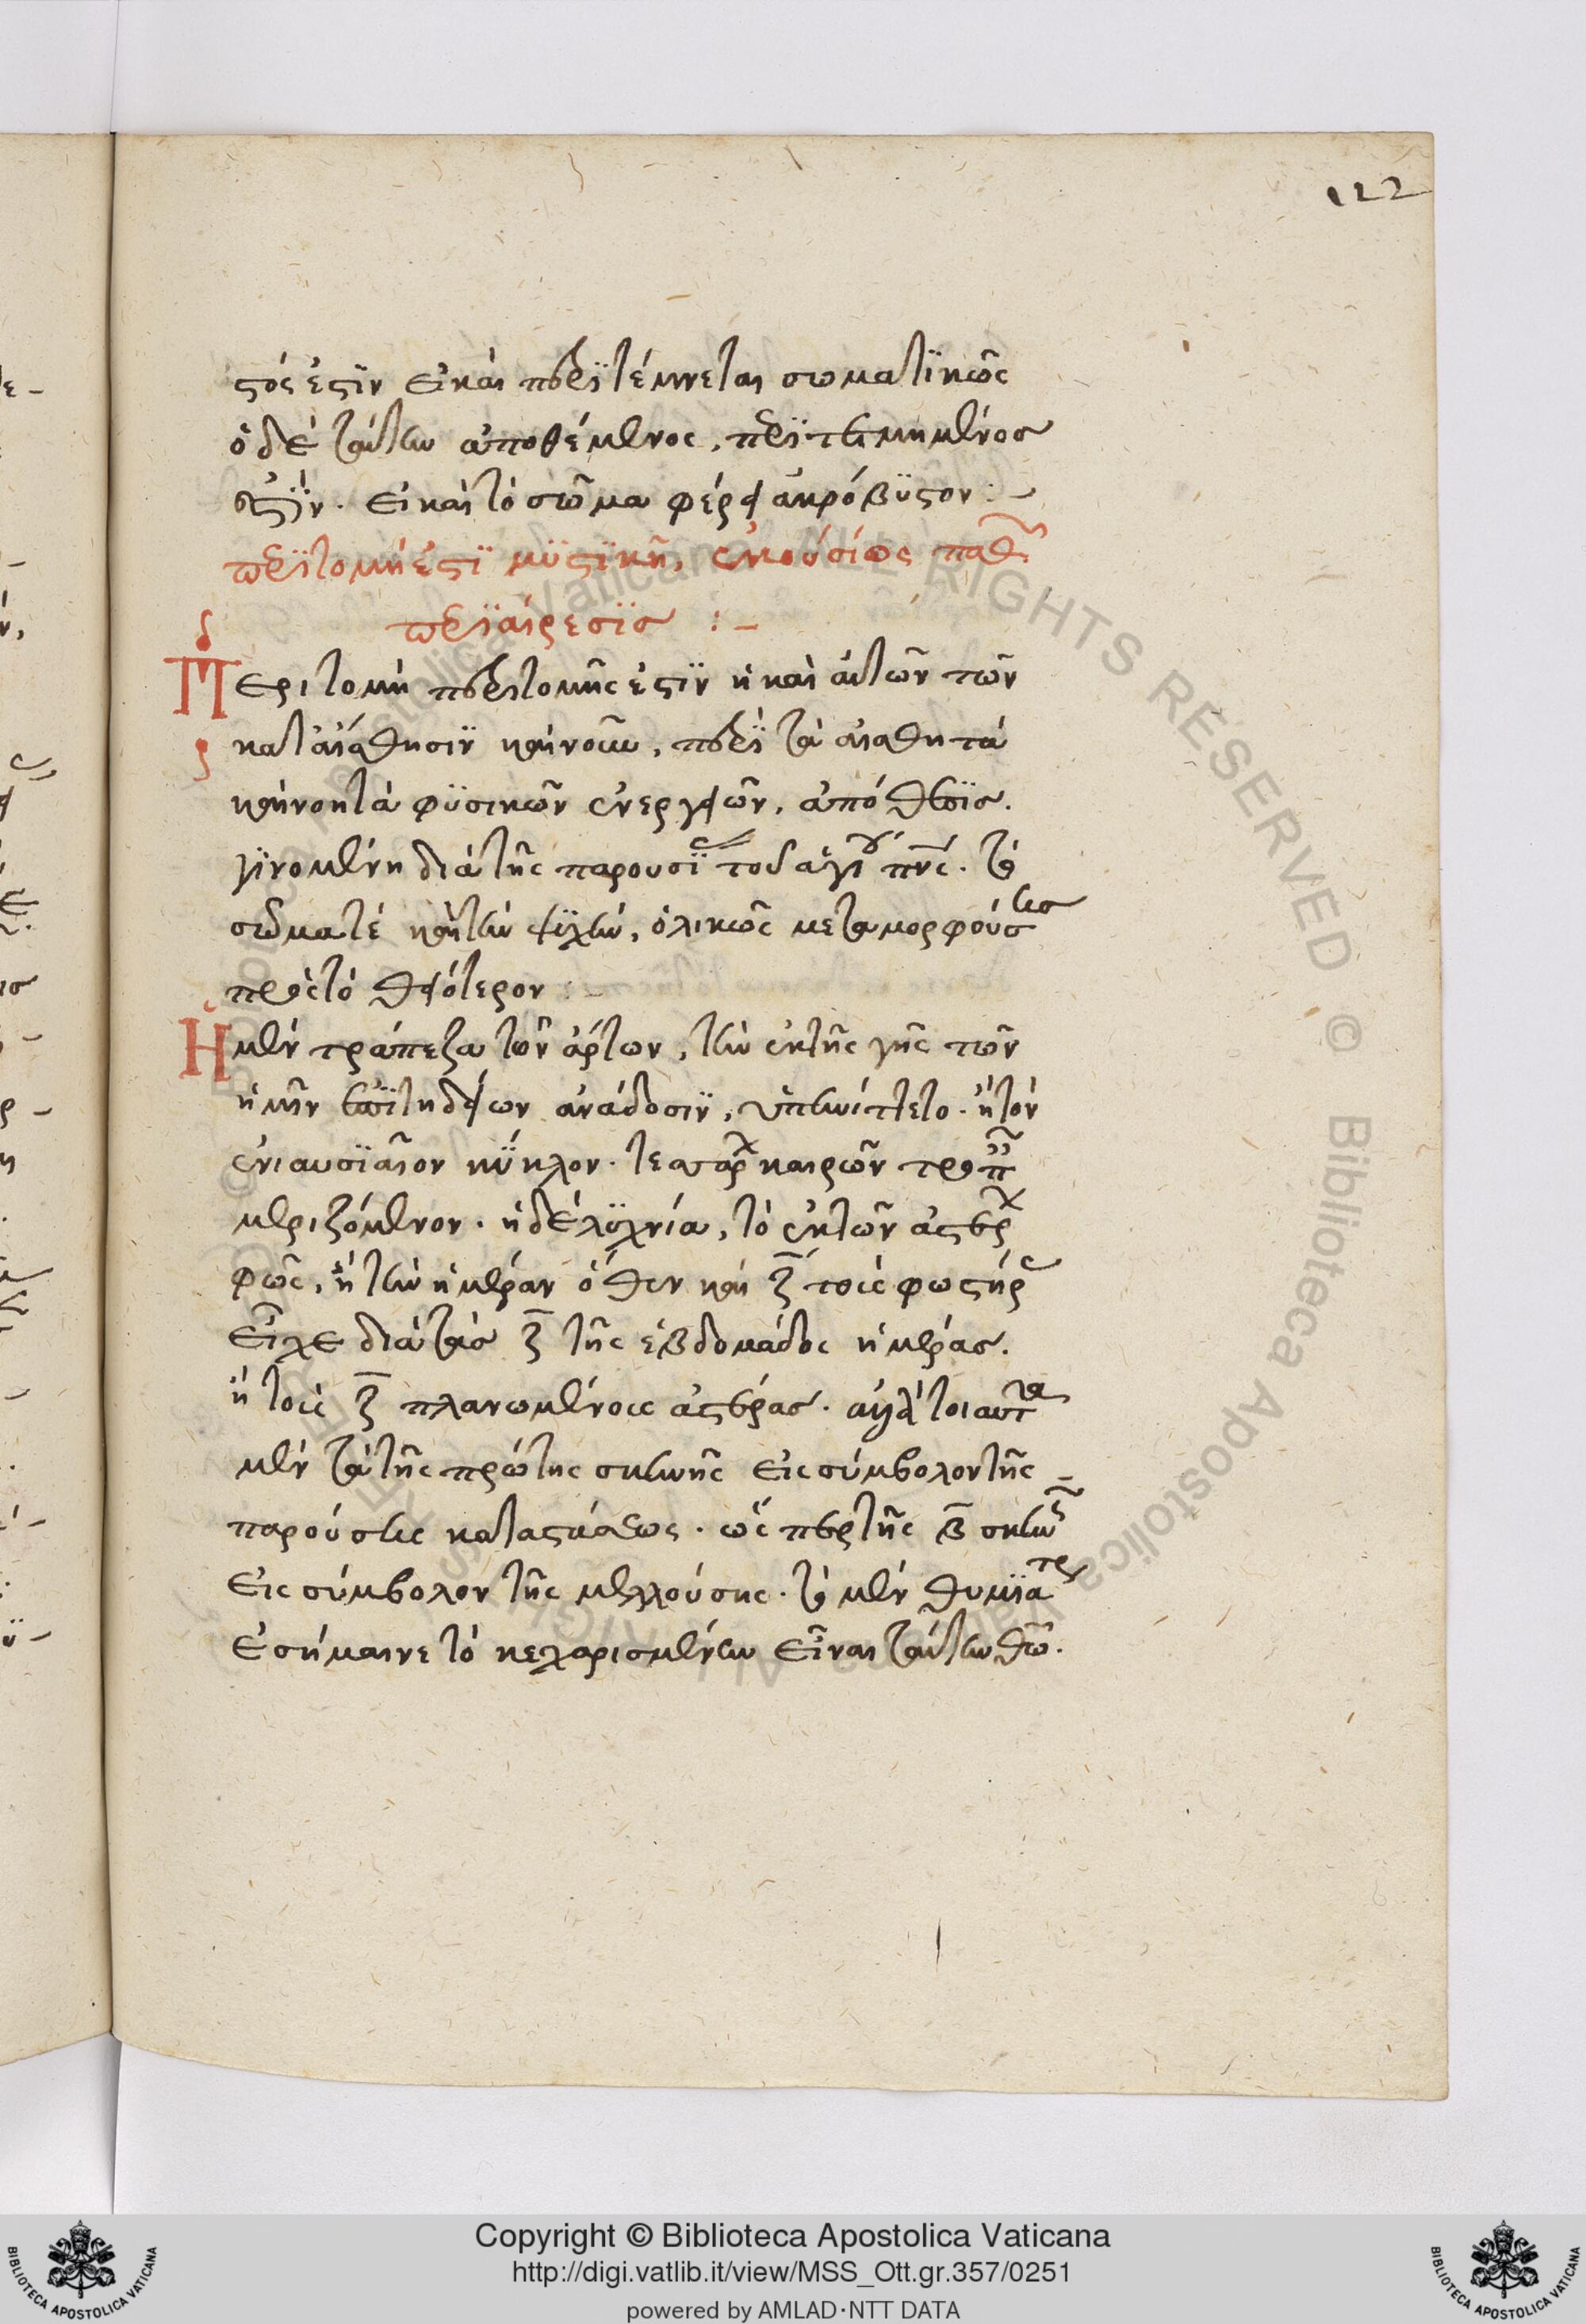 122
στός ἐστϊν εἰ καὶ περϊτέμνεται σωματϊκῶς
ὁ δὲ ταύτην ἀποθέμενος, περϊτετμημένος
ἐστϊν. εἰ καὶ τὸ σῶμα φέρει ἀκρόβϋστον :-
περϊτομή ἐστϊ μϋστϊκὴ, ἑκουσίως παθῶν
περϊαίρεσϊς :-
Περιτομὴ περιτομῆς ἐστϊν ἡ καὶ αὐτῶν τῶν
κατ αἴσθησιϊν καὶ νοῦν, περϊ τὰ αἰσθητὰ
καὶ νοητὰ φϋσικῶν ἐνεργειῶν, ἀπόθεσϊς.
γϊνομένη διὰ τῆς παρουσϊας τοῦ ἁγίου πνς. τὸ
σῶμα τὲ καὶ τὴν ψϋχὴν, ὁλικῶς μεταμορφούσης
πρὸς τὸ θειότερον :-
Ἡ μὲν τράπεζα τῶν ἄρτων, τὴν ἐκ τῆς γῆς τῶν
ἡμῖν ἐπϊτηδείων ἀνάδοσιν, ὑπηνίττετο. ἢ τὸν
ἐνιαυσϊαῖον κϋκλον. τέσσαρσι καιρῶν τροπαῖς
μεριζόμενον. ἡ δὲ λϋχνία, τὸ ἐκ τῶν ἀστέρων
φῶς, ἢ τὴν ἡμέραν ὅθεν καὶ ζ τοὺς φωστῆρας
εἶχε διὰ τὰς ζ τῆς ἑβδομάδος ἡμέρας.
ἢ τοὺς ζ πλανωμένους ἀστέρας. ἀλλὰ τοιαῦτα
μὲν τὰ τῆς πρώτης σκηνῆς εἰς σύμβολον τῆς
παρούσης καταστάσεως. ὥσπερ τῆς β σκηνῆς
εἰς σύμβολον τῆς μελλούσης. τὸ μὲν θυμϊατήριον
ἐσήμαινε τὸ κεχαρισμένην εἶναι ταύτην θω.
Copyright © Biblioteca Apostolica Vaticana
http://digi.vatlib.it/view/MSS_Ott.gr.357/0251
powered by AMLAD·NTT DATA